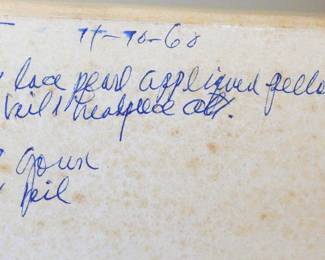 11-30-68
lace pearl appliqued
veil & headpiece
gown
veil